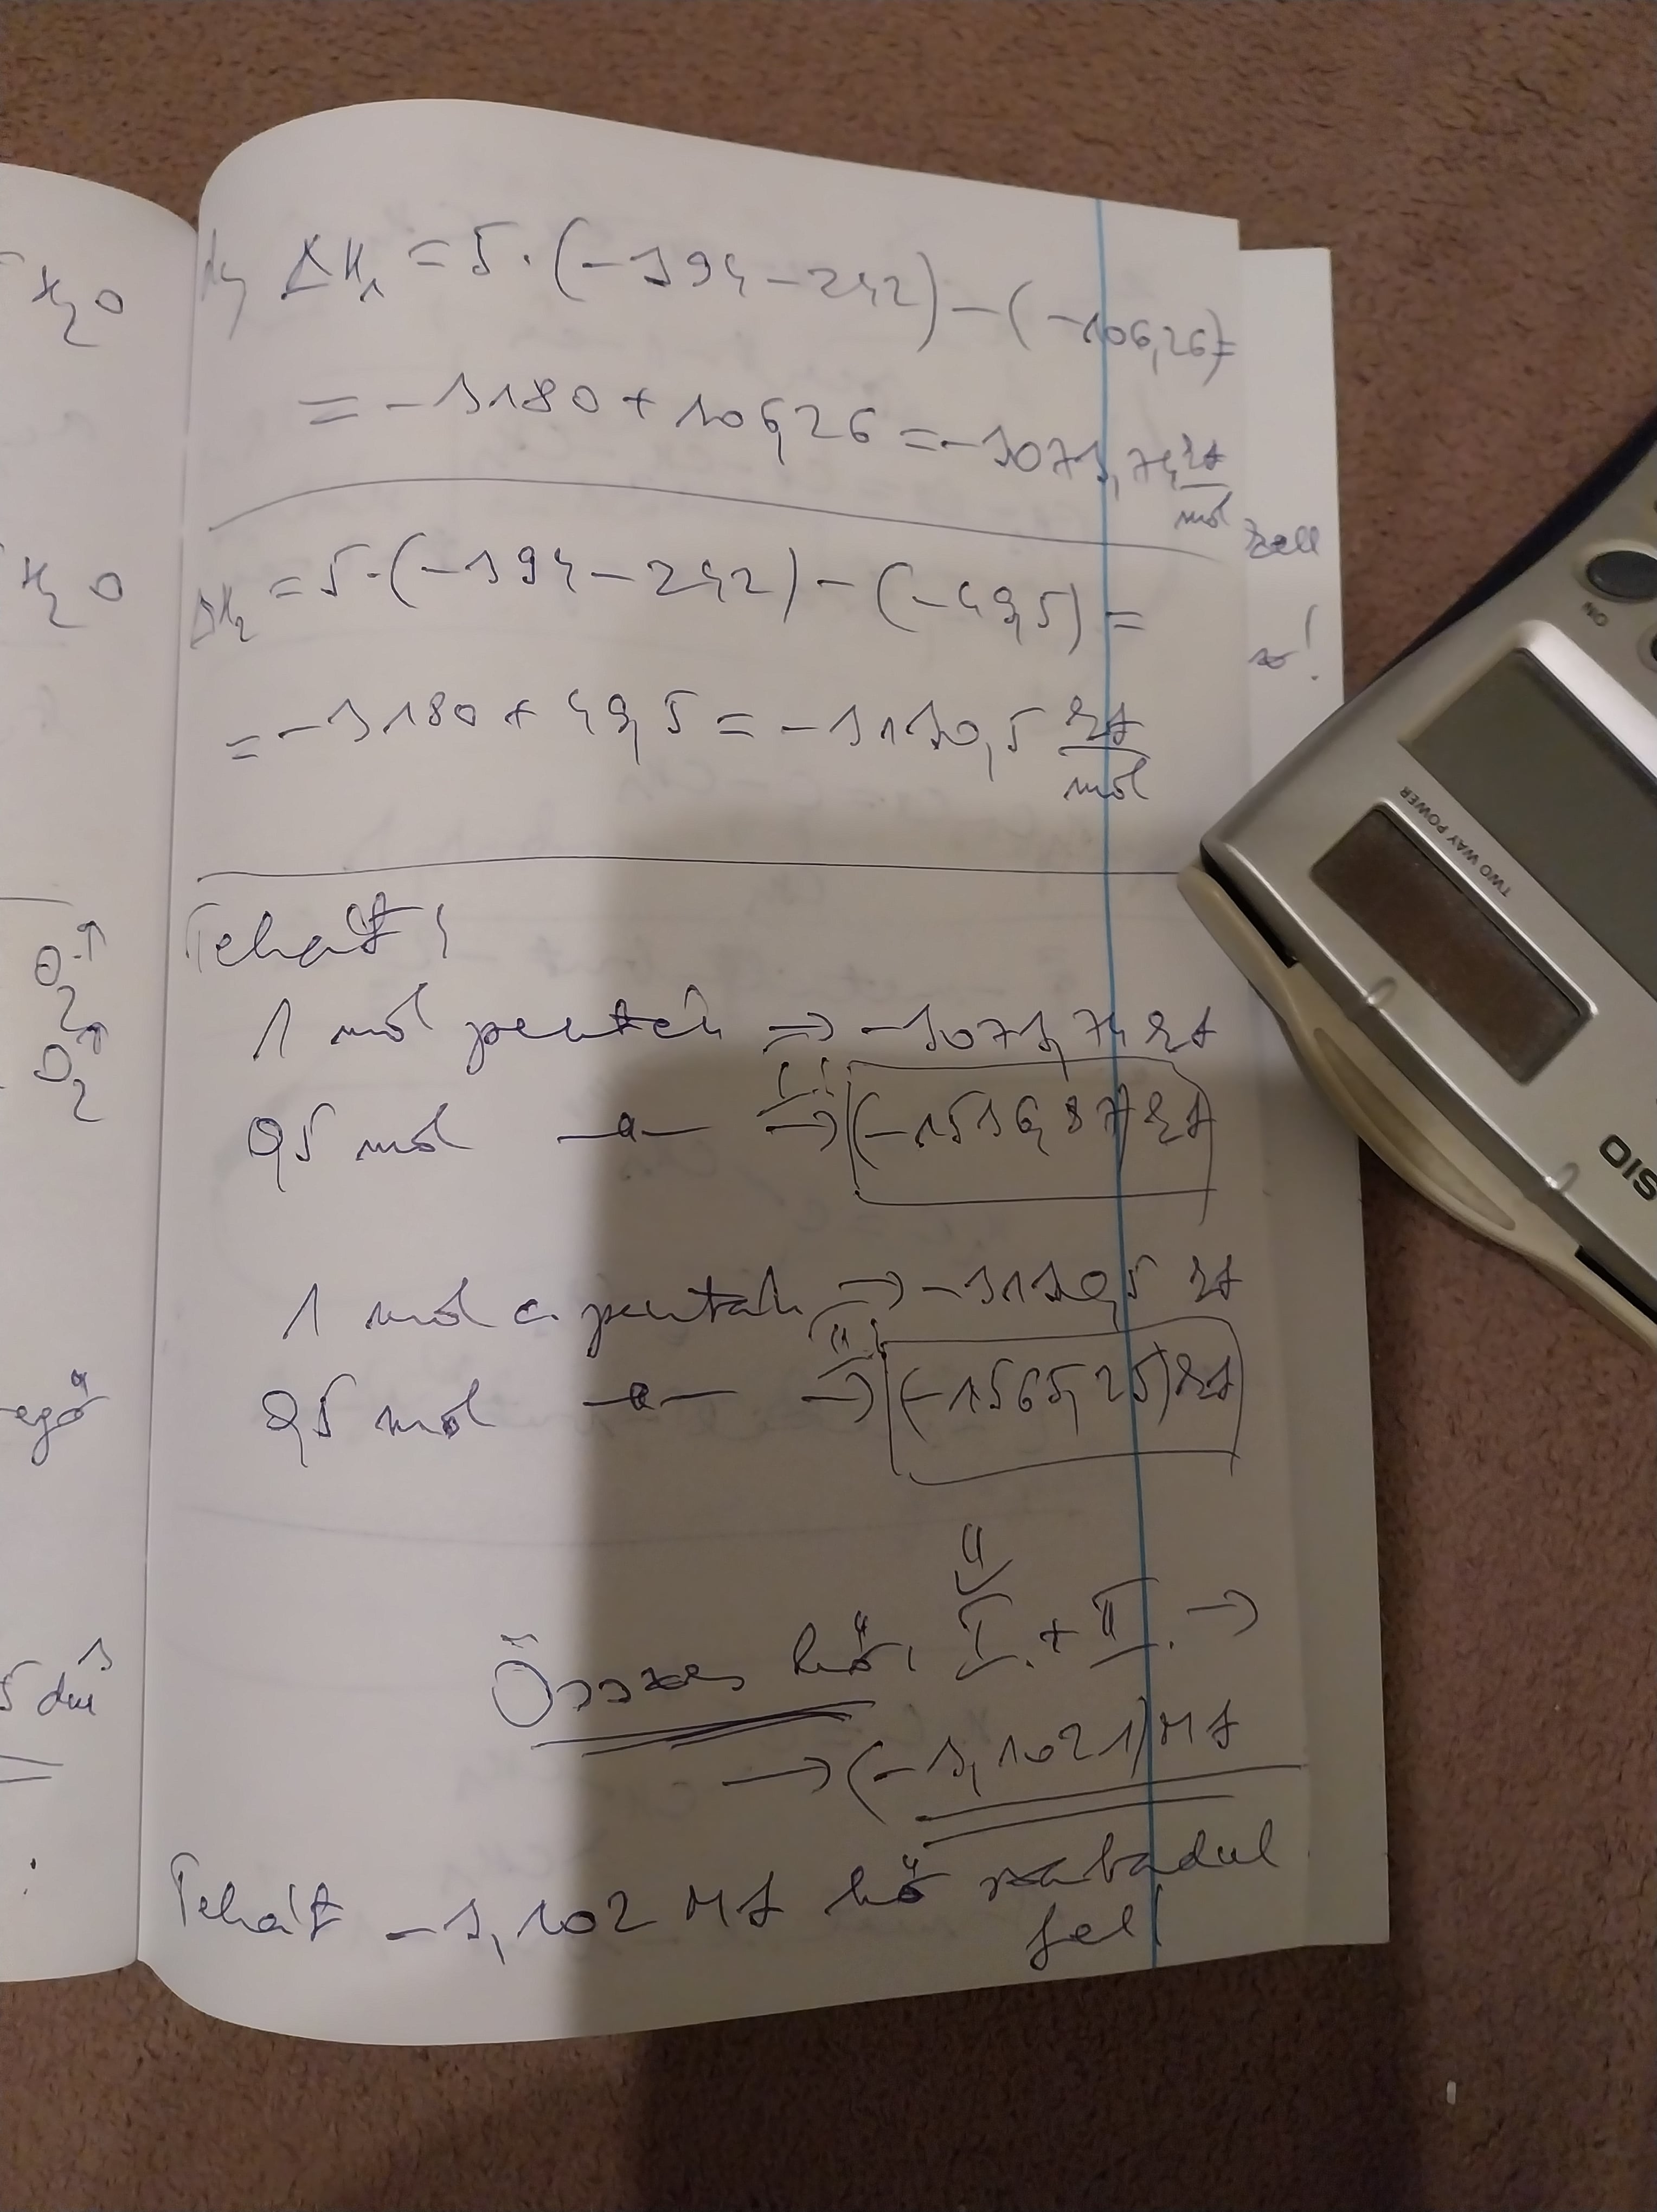 H₂O
H₂O
O₂↑
O₂↑
egő
5 dm³
ΔH₁ = 5·(-394-242)-(-106,26)=
= -3180 + 106,26 = -3073,74 kJ/mol
ΔH₂ = 5·(-394-242)-(-49,5) =
= -3180 + 49,5 = -3130,5 kJ/mol
kell
Tehát:
1 mol pentén ⇒ -3073,74 kJ
I.
0,5 mol —"— → (-1536,87) kJ
1 mol c.pentán → -3130,5 kJ
II.
0,5 mol —"— → (-1565,25) kJ
⇓
Összes hő: I. + II. →
→ (-3,1021) MJ
Tehát -3,102 MJ hő szabadul
fel!
ON
TWO WAY POWER
SIO